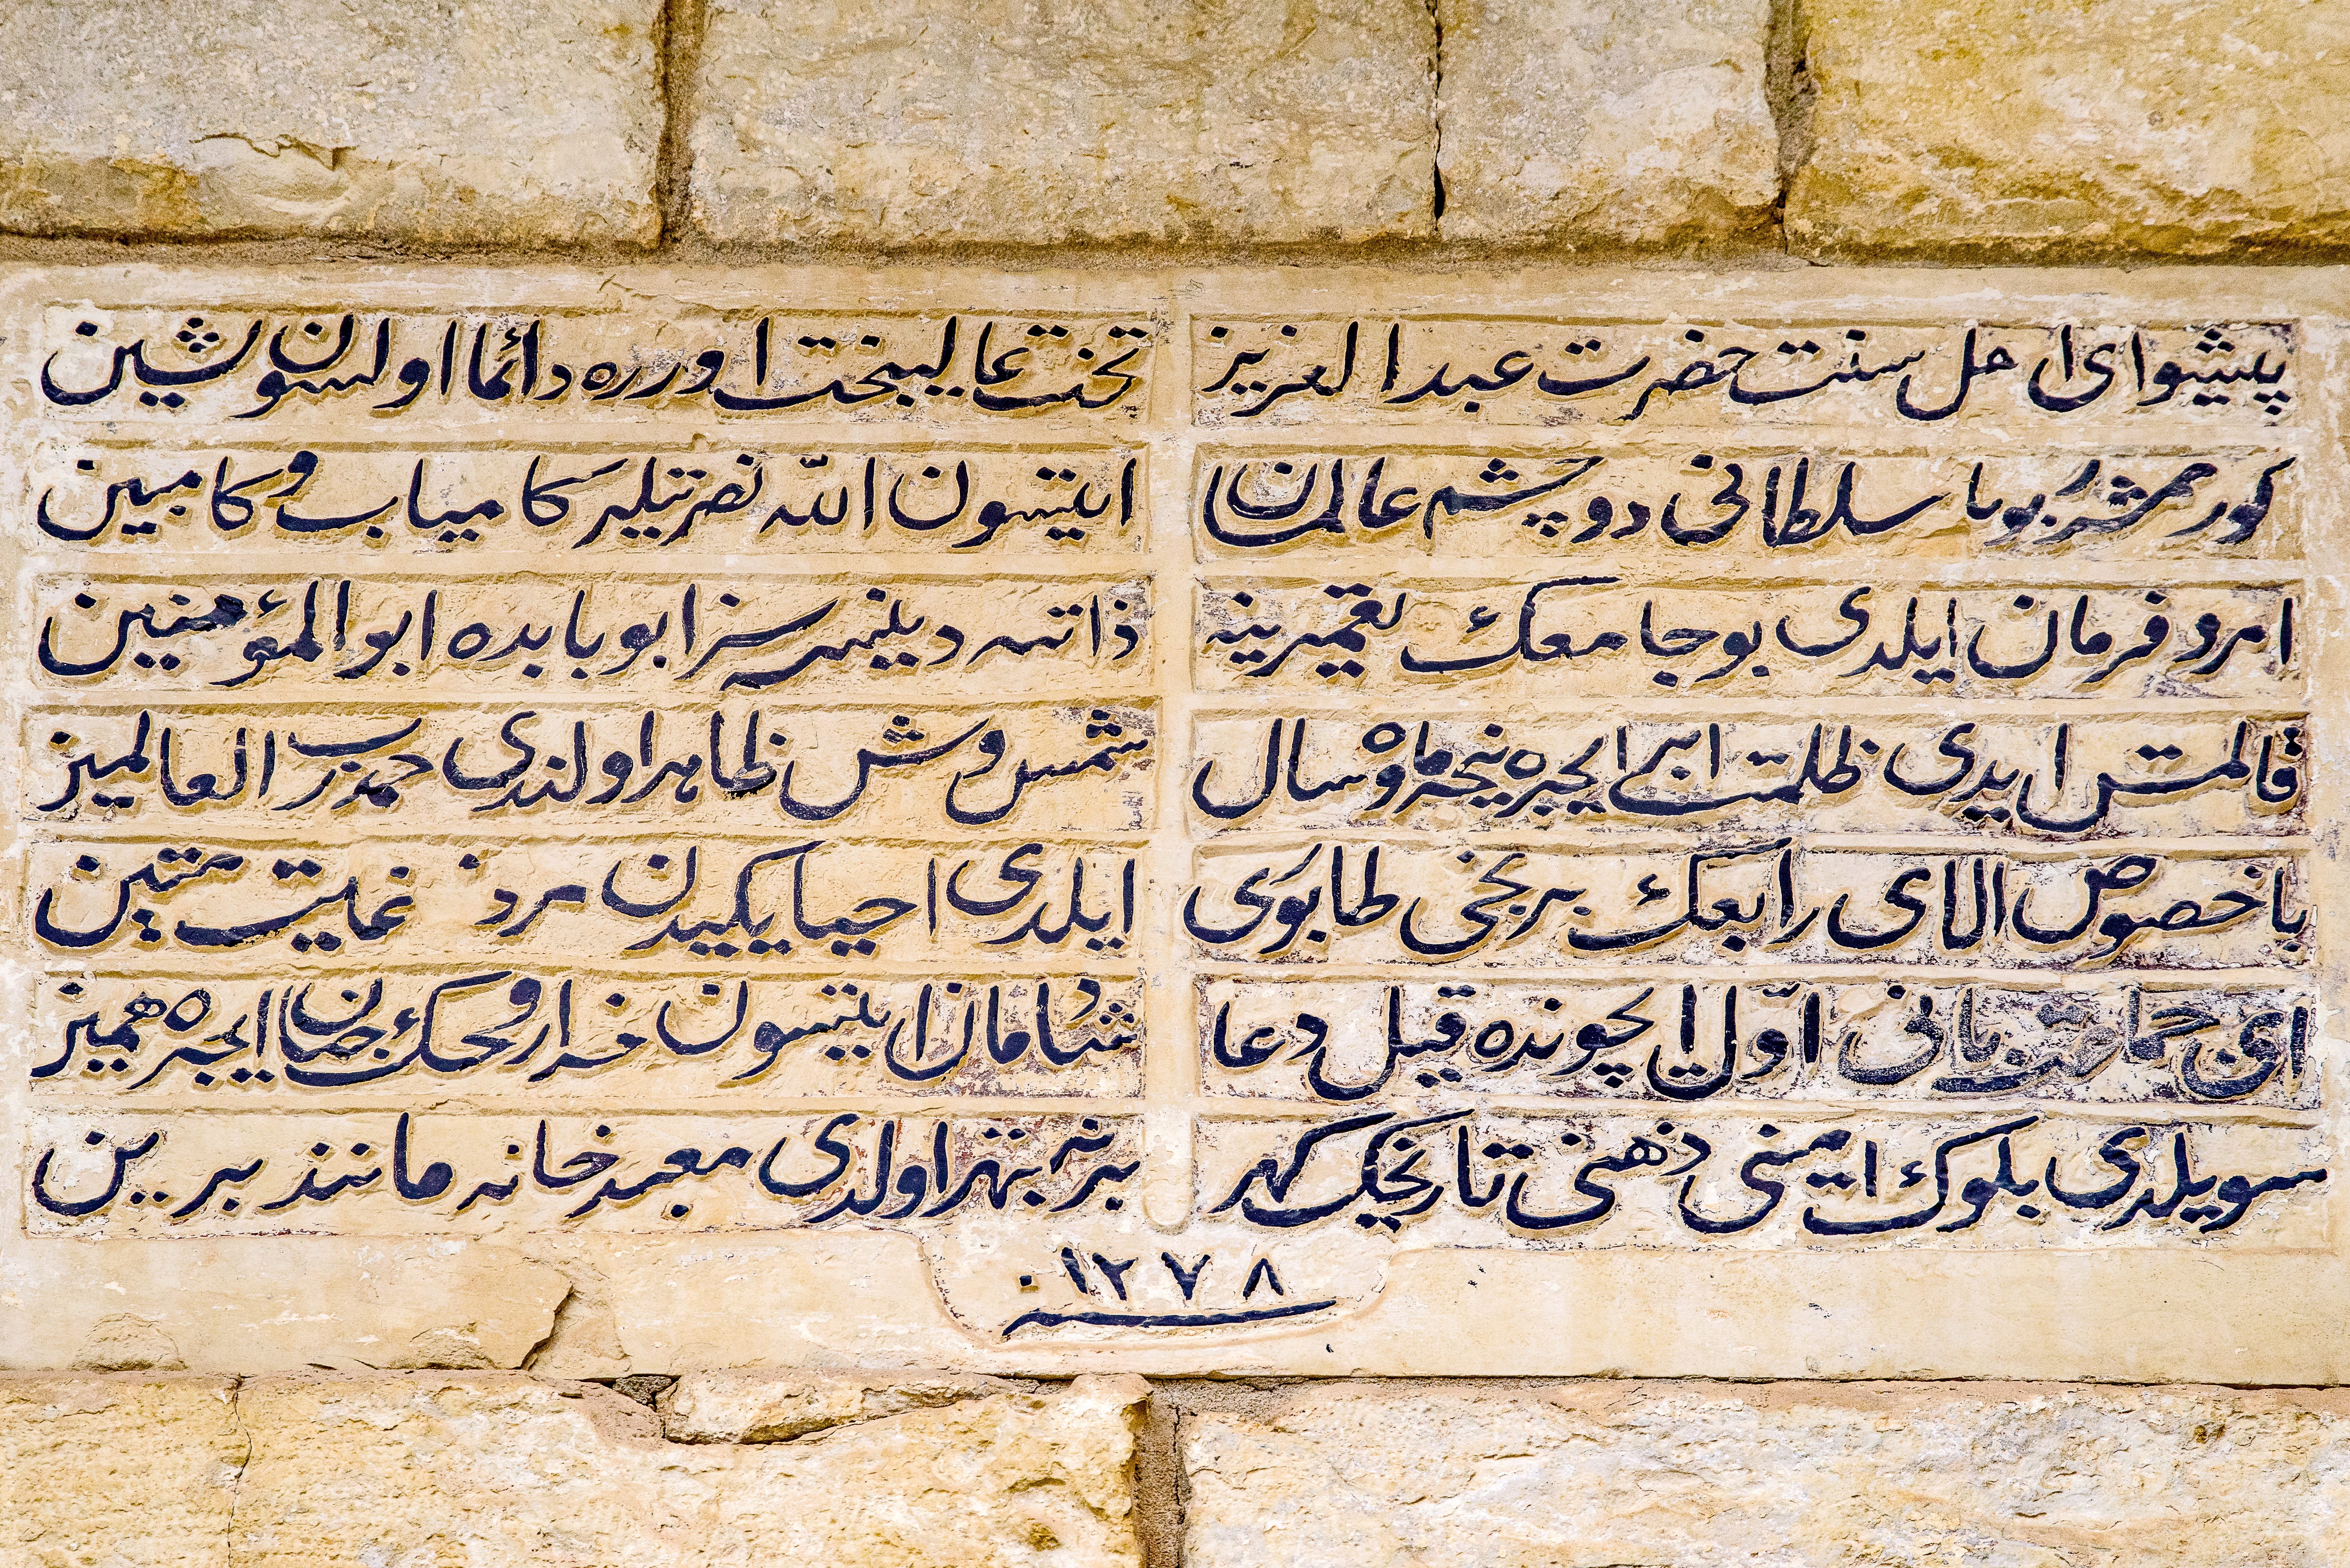 پیشوای اهل سنت حضرت عبد العزیز تخت عالیبخت اوزره دائما اولسون نشین
سلطانی دو چشم عالمان ایتسون الله نصرتیله کامیاب و کامبین
امر و فرمان ایلدی بو جامعک تعمیرینه ذاتنه دینسه سزا بو بابده ابو المؤمنین
قالمش ایدی ظلمت ابری ایچره نیجه ماه و سال شمس وش ظاهر اولندی حمد رب العالمین
با خصوص الای رابعک بر نجی طابوری ایلدی احیا یکیدن متین
اول ایچونده قیل دعا شادمان ایتسون خدا روحک جنان ایچره همین
سویلدی بلوک امینی ذهنی تاریخک کهر اولدی معبدخانه مانند برین
١٢٧٨
سنه